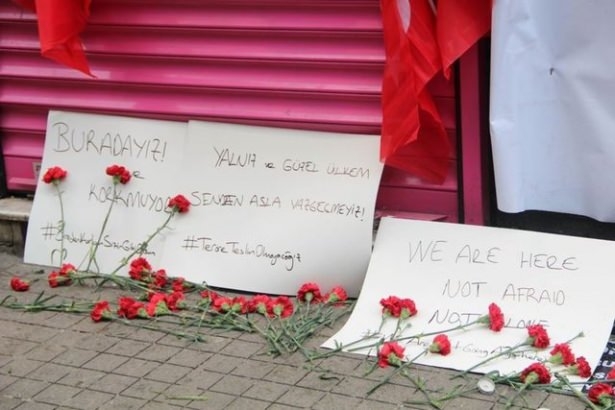 BURADAYIZ!
ve
KORKMUYORUZ
YALNIZ ve GÜZEL ÜLKEM
SENDEN ASLA VAZGEÇMEYİZ!
#TeröreTeslimOlmayacağız
WE ARE HERE
NOT AFRAID
NOT ALONE